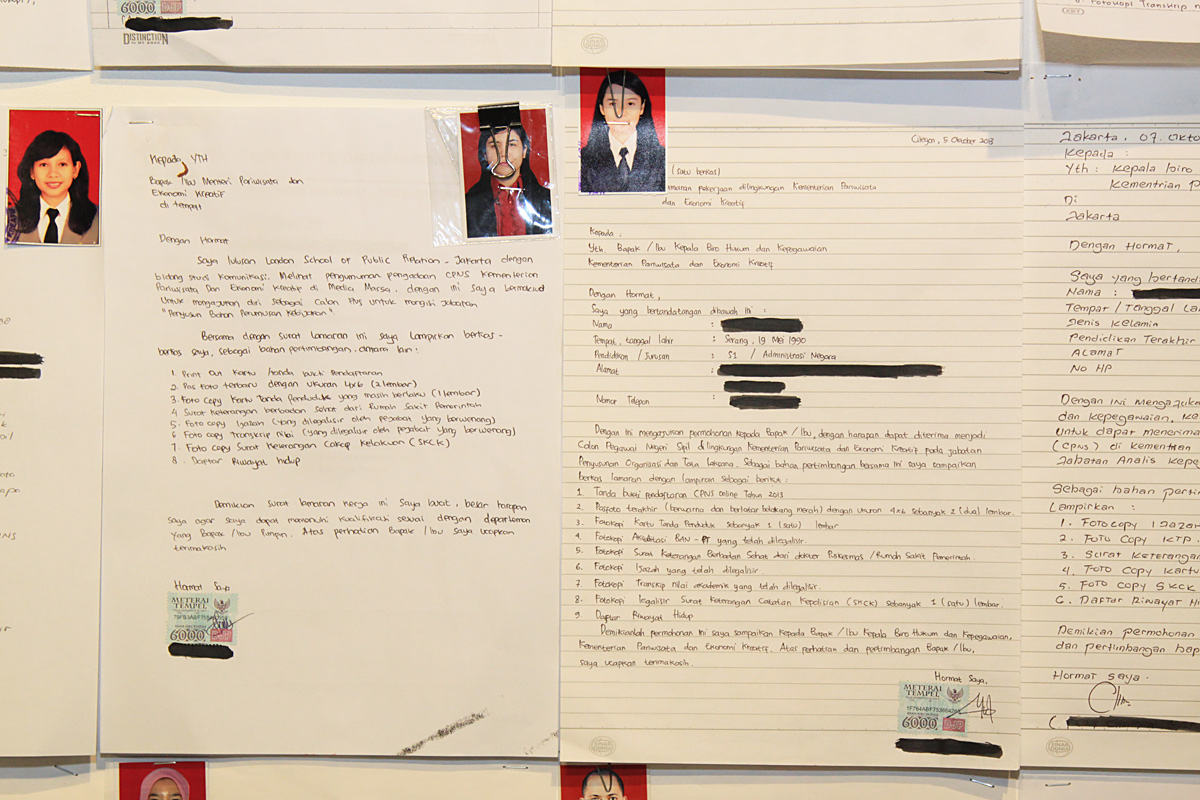 6000
DISTINCTION
Fotokopi Transkrip n
Kepada YTH
Bapak / Ibu Menteri Pariwisata dan
Ekonomi Kreatif
di tempat
Dengan Hormat
Saya lulusan London School of Public Relation - Jakarta dengan
bidang studi komunikasi. Melihat pengumuman pengadaan CPNS Kementerian
Pariwisata dan Ekonomi Kreatif di Media Massa, dengan ini saya bermaksud
untuk mengajukan diri sebagai Calon PNS untuk mengisi jabatan
"Penyusun Bahan Perumusan Kebijakan"
Bersama dengan surat lamaran ini saya lampirkan berkas-
berkas saya, sebagai bahan pertimbangan antara lain:
1. Print Out Kartu tanda bukti Pendaftaran
2. Pas foto terbaru dengan ukuran 4x6 (2 lembar)
3. Foto copy Kartu Tanda Penduduk yang masih berlaku (1 lembar)
4 Surat keterangan berbadan sehat dari Rumah Sakit Pemerintah
5. Foto copy Ijazah (yang dilegalisir oleh pejabat yang berwenang)
6 Foto copy Transkrip Nilai (yang dilegalisir oleh pejabat yang berwenang)
7 Foto copy Surat Keterangan Cakap Kelakuan (SKCK)
8. Daftar Riwayat hidup
Demikian surat lamaran kerja ini saya buat, besar harapan
saya agar saya dapat memenuhi kualifikasi sesuai dengan departemen
yang Bapak / Ibu Pimpin. Atas perhatian Bapak / Ibu saya ucapkan
terimakasih
Hormat Saya
METERAI
TEMPEL
6000
Cilegon, 5 Oktober 2013
(satu berkas)
lamaran pekerjaan dilingkungan Kementerian Pariwisata
dan Ekonomi Kreatif
Kepada,
Yth. Bapak / Ibu Kepala Biro Hukum dan Kepegawaian
Kementerian Pariwisata dan Ekonomi Kreatif
Dengan Hormat,
Saya yang bertandatangan dibawah ini :
Nama :
Tempat, tanggal lahir : Serang, 19 Mei 1990
Pendidikan / Jurusan : S1 / Administrasi Negara
Alamat :
Nomor Telepon :
Dengan ini mengajukan permohonan kepada Bapak / Ibu, dengan harapan dapat diterima menjadi
Calon Pegawai Negeri Sipil di lingkungan Kementerian Pariwisata dan Ekonomi Kreatif pada jabatan
Penyusunan Organisasi dan Tata Laksana. Sebagai bahan pertimbangan bersama ini saya sampaikan
berkas lamaran dengan lampiran sebagai berikut :
1. Tanda bukti pendaftaran CPNS online Tahun 2013
2. Pasfoto terakhir (berwarna dan berlatar belakang merah) dengan ukuran 4x6 sebanyak 2 (dua) lembar.
3. Fotokopi Kartu Tanda Penduduk sebanyak 1 (satu) lembar
4. Fotokopi Akreditasi BAN-PT yang telah dilegalisir.
5. Fotokopi Surat Keterangan Berbadan Sehat dari dokter Puskesmas / Rumah Sakit Pemerintah.
6. Fotokopi Ijazah yang telah dilegalisir.
7. Fotokopi Transkip nilai akademik yang telah dilegalisir.
8. Fotokopi legalisir Surat Keterangan Catatan Kepolisian (SKCK) sebanyak 1 (satu) lembar.
9. Daftar Riwayat Hidup
Demikianlah permohonan ini saya sampaikan kepada Bapak / Ibu Kepala Biro Hukum dan Kepegawaian,
Kementerian Pariwisata dan Ekonomi Kreatif. Atas perhatian dan pertimbangan Bapak / Ibu,
saya ucapkan terimakasih.
Hormat Saya,
METERAI
TEMPEL
6000
Jakarta, 07. Okto
Kepada :
Yth : Kepala Biro
Kementrian P
Di
Jakarta
Dengan Hormat,
Saya yang bertandi
Nama :
Tempat / Tanggal La
Jenis Kelamin
Pendidikan Terakhir
Alamat
No HP
Dengan ini Mengajuk
dan kepegawaian, Ke
untuk dapat menerima
(CPNS) di kementrian
Jabatan Analis Kepe
Sebagai bahan perti
Lampiran :
1. Foto copy Ijazah
2. Foto Copy KTP.
3. Surat Keterangan
4. Foto Copy Kartu
5. Foto Copy SKCK
6. Daftar Riwayat H
Demikian permohonan
dan pertimbangan bap
Hormat saya.